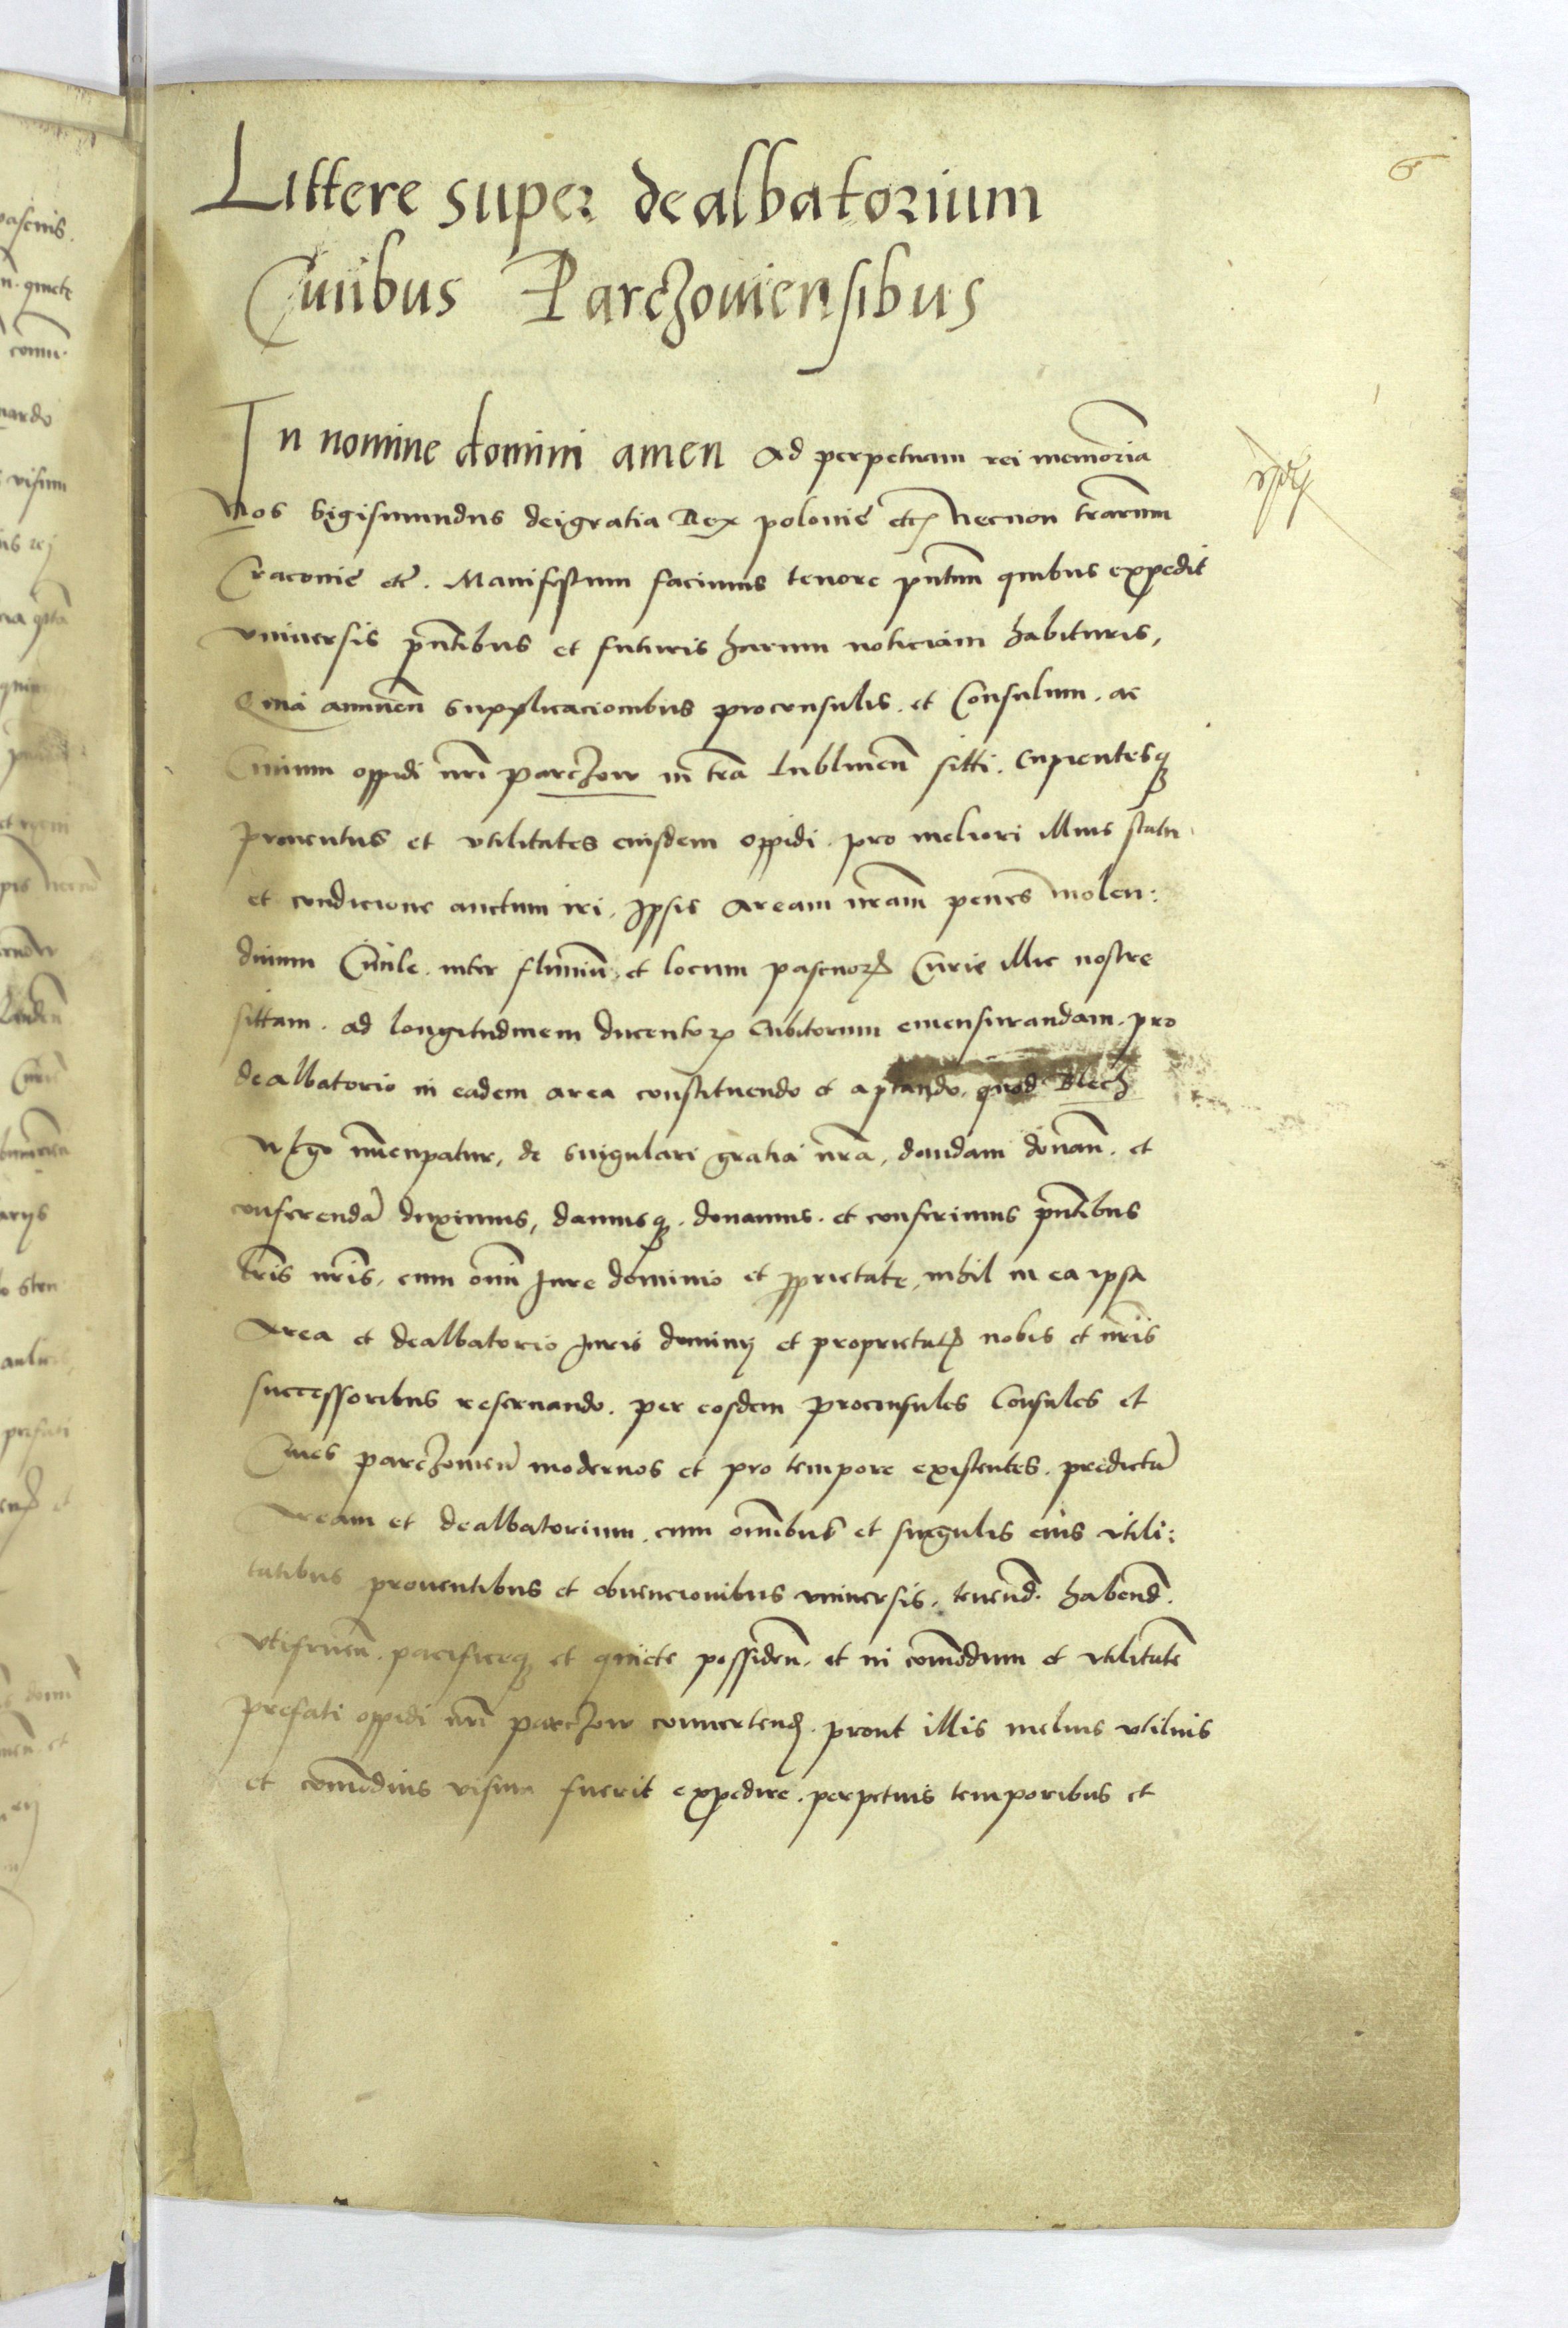 6
Littere super dealbatorium
Ciuibus Parczouiensibus
In nomine domini amen Ad perpetuam rei memoria
Nos Sigismundus deigratia Rex polonie etc necnon trarum
Cracouie etc. Manifestum facimus tenore pntium quibus expedit
vniuersis pntibus et futuris harum noticiam habituris,
Quia annuen supplicacionibus proconsulis. et Consulum. ac
Ciuium oppidi nri parczow in tra lublinen sitti. Cupientesq
prouentus et vtilitates eiusdem oppidi. pro meliori illius statu
et condicione auctum iri, Ipsis Aream nram penes molen:
dinum Ciuile. inter fluuiu, et locum pascuor Curie illic nostre
sittam. ad longitudinem ducentor Cubitorum emensurandam. pro
dealbatorio in eadem area constituendo et aptando, quod Blech
wlgo nuncupatur, de singulari gratia nra, dandam donan. et
conferenda duximus, damusq. donamus. et conferimus pntibus
tris nris, cum omi Iure dominio et pprietate, nihil in ea ipsa
Area et dealbatorio Iuris dominij et proprietat nobis et nris
successoribus reseruando. per eosdem proconsules Consules et
Ciues parczouien modernos et pro tempore existentes. predicta
Aream et dealbatorium. cum omibus et singulis eius vtili:
tatibus prouentibus et obuencionibus vniuersis. tenend. habend.
vtifruen. pacificeq et quiete possiden. et in comodum et vtilitate
prefati oppidi nri parczow conuertend. prout illis melius vtilius
et comodius visum fuerit expedire. perpetuis temporibus et